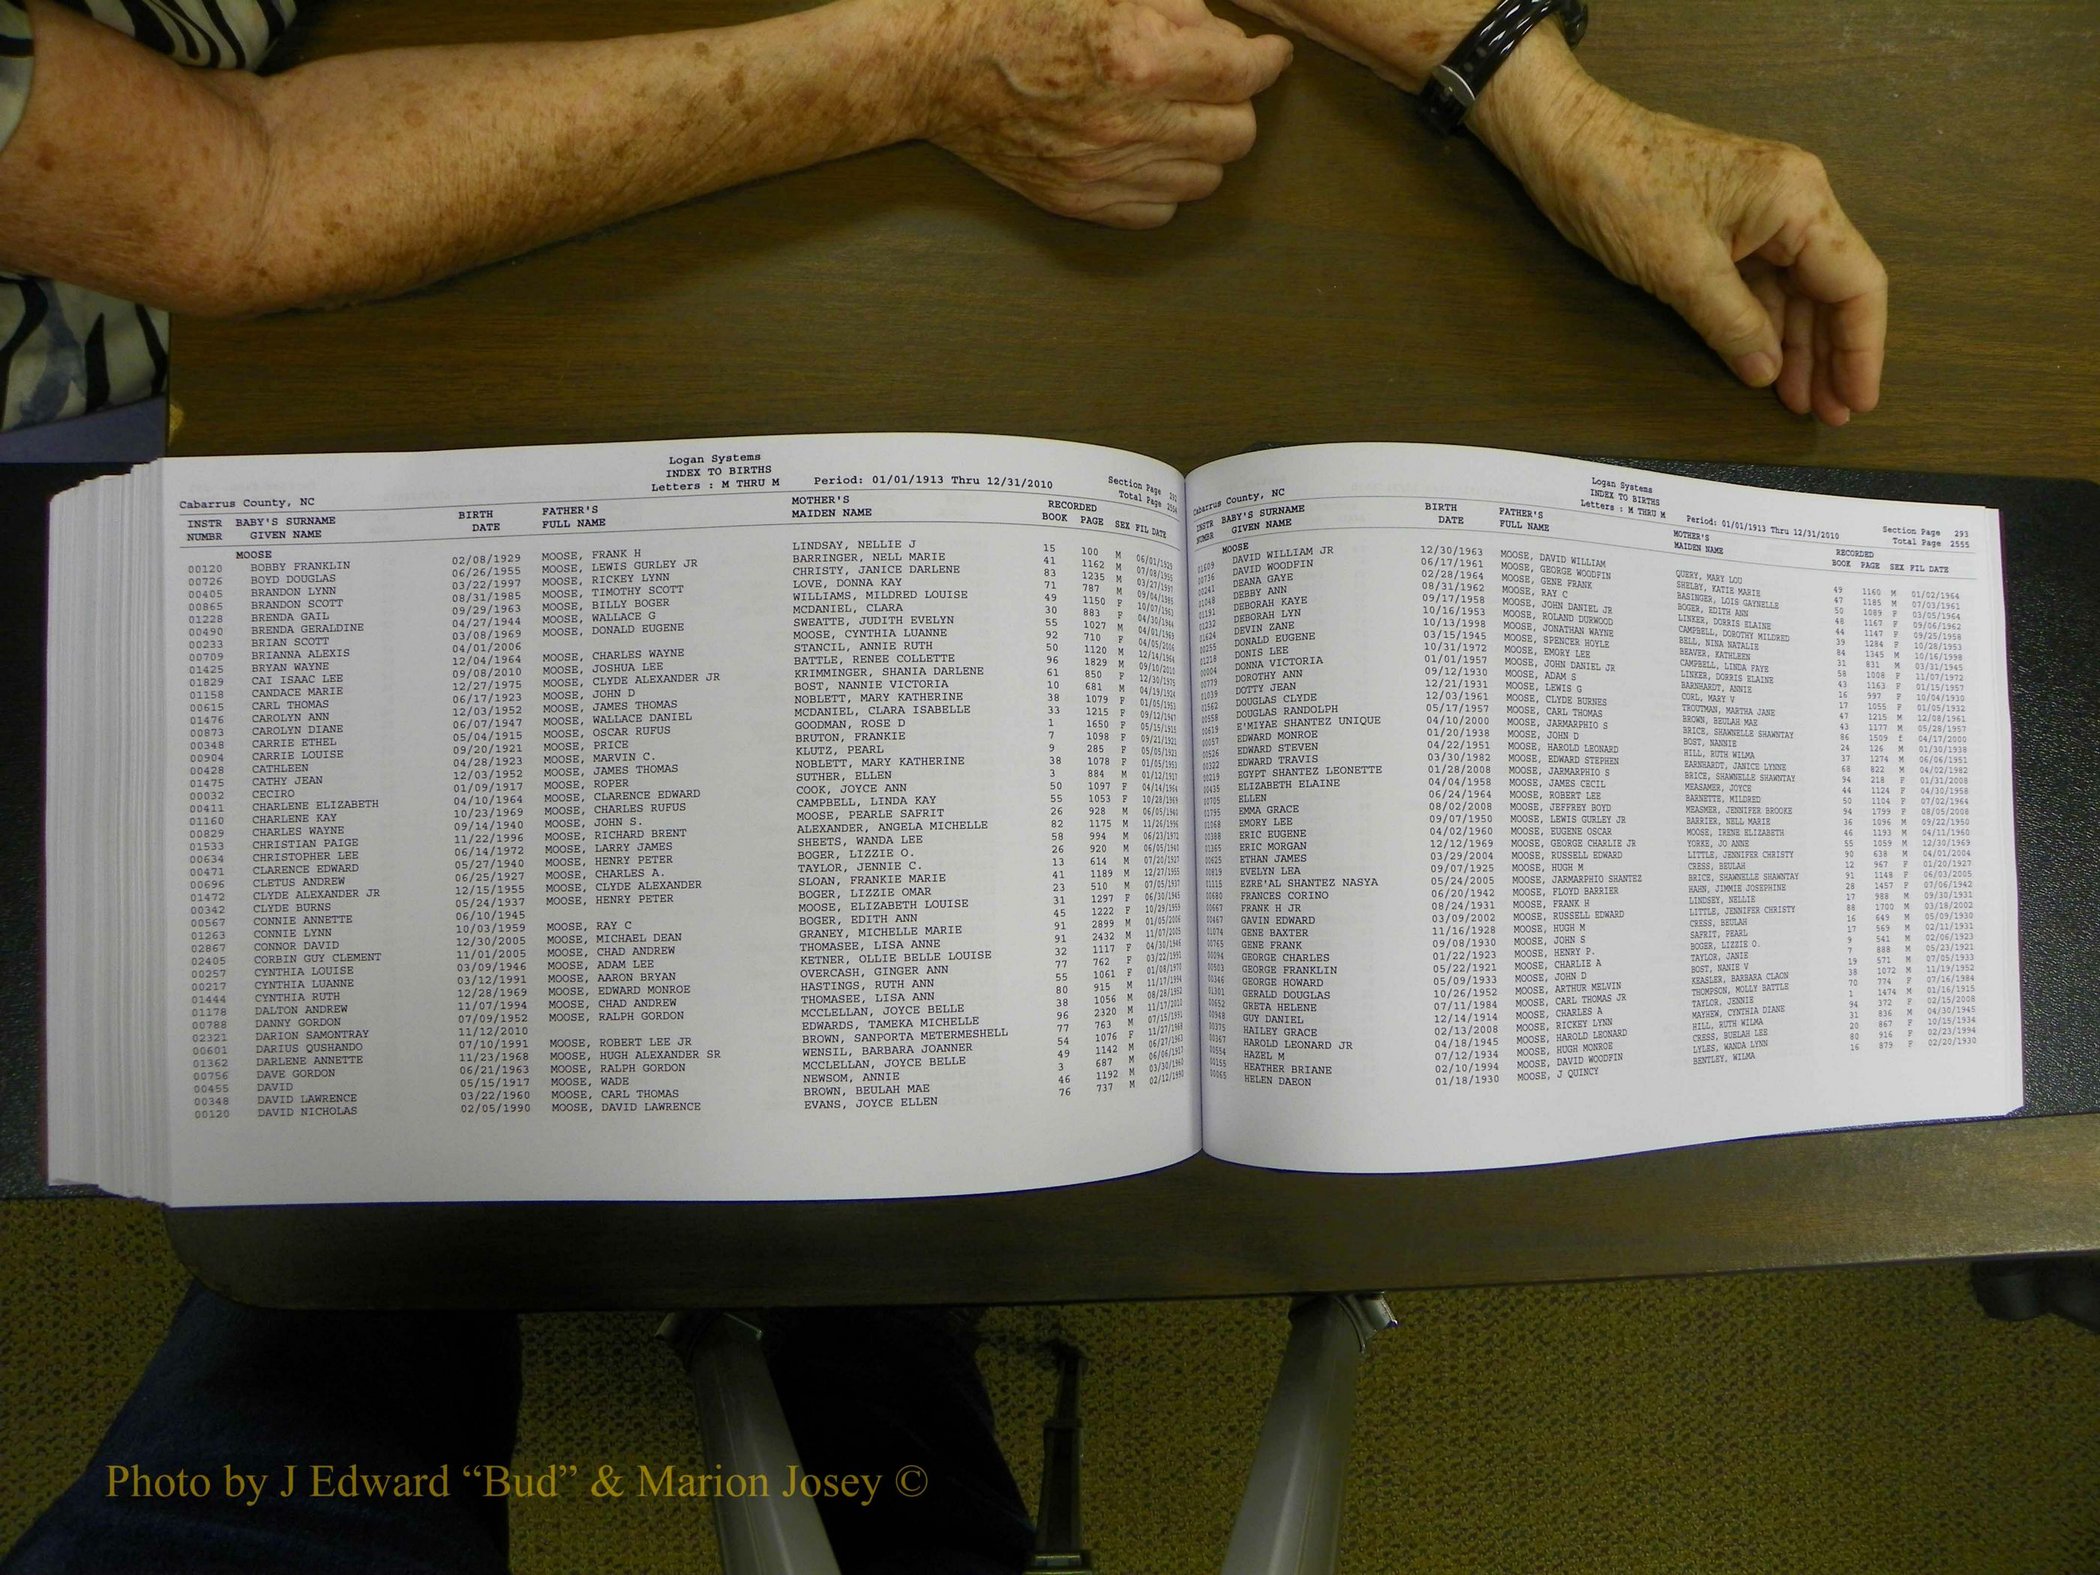 Logan Systems
INDEX TO BIRTHS
Cabarrus County, NC Letters : M THRU M Period: 01/01/1913 Thru 12/31/2010 Section Page 292
Total Page 2554
INSTR BABY'S SURNAME BIRTH FATHER'S MOTHER'S RECORDED
NUMBR GIVEN NAME DATE FULL NAME MAIDEN NAME BOOK PAGE SEX FIL DATE
MOOSE
00120 BOBBY FRANKLIN 02/08/1929 MOOSE, FRANK H LINDSAY, NELLIE J 15 100 M 06/01/1929
00726 BOYD DOUGLAS 06/26/1955 MOOSE, LEWIS GURLEY JR BARRINGER, NELL MARIE 41 1162 M 07/08/1955
00405 BRANDON LYNN 03/22/1997 MOOSE, RICKEY LYNN CHRISTY, JANICE DARLENE 83 1235 M 03/27/1997
00865 BRANDON SCOTT 08/31/1985 MOOSE, TIMOTHY SCOTT LOVE, DONNA KAY 71 787 M 09/04/1985
01228 BRENDA GAIL 09/29/1963 MOOSE, BILLY BOGER WILLIAMS, MILDRED LOUISE 49 1150 F 10/07/1963
00490 BRENDA GERALDINE 04/27/1944 MOOSE, WALLACE G MCDANIEL, CLARA 30 883 F 04/30/1944
00233 BRIAN SCOTT 03/08/1969 MOOSE, DONALD EUGENE SWEATTE, JUDITH EVELYN 55 1027 M 04/01/1969
00709 BRIANNA ALEXIS 04/01/2006 MOOSE, CYNTHIA LUANNE 92 710 F 04/05/2006
01425 BRYAN WAYNE 12/04/1964 MOOSE, CHARLES WAYNE STANCIL, ANNIE RUTH 50 1120 M 12/14/1964
01829 CAI ISAAC LEE 09/08/2010 MOOSE, JOSHUA LEE BATTLE, RENEE COLLETTE 96 1829 M 09/10/2010
01158 CANDACE MARIE 12/27/1975 MOOSE, CLYDE ALEXANDER JR KRIMMINGER, SHANIA DARLENE 61 850 F 12/30/1975
00615 CARL THOMAS 06/17/1923 MOOSE, JOHN D BOST, NANNIE VICTORIA 10 681 M 04/19/1924
01476 CAROLYN ANN 12/03/1952 MOOSE, JAMES THOMAS NOBLETT, MARY KATHERINE 38 1079 F 01/05/1953
00873 CAROLYN DIANE 06/07/1947 MOOSE, WALLACE DANIEL MCDANIEL, CLARA ISABELLE 33 1215 F 09/12/1947
00348 CARRIE ETHEL 05/04/1915 MOOSE, OSCAR RUFUS GOODMAN, ROSE D 1 1650 F 05/15/1915
00904 CARRIE LOUISE 09/20/1921 MOOSE, PRICE BRUTON, FRANKIE 7 1098 F 09/21/1921
00428 CATHLEEN 04/28/1923 MOOSE, MARVIN C. KLUTZ, PEARL 9 285 F 05/05/1923
01475 CATHY JEAN 12/03/1952 MOOSE, JAMES THOMAS NOBLETT, MARY KATHERINE 38 1078 F 01/05/1953
00032 CECIRO 01/09/1917 MOOSE, ROPER SUTHER, ELLEN 3 884 M 01/12/1917
00411 CHARLENE ELIZABETH 04/10/1964 MOOSE, CLARENCE EDWARD COOK, JOYCE ANN 50 1097 F 04/14/1964
01160 CHARLENE KAY 10/23/1969 MOOSE, CHARLES RUFUS CAMPBELL, LINDA KAY 55 1053 F 10/28/1969
00829 CHARLES WAYNE 09/14/1940 MOOSE, JOHN S. MOOSE, PEARLE SAFRIT 26 928 M 06/05/1940
01533 CHRISTIAN PAIGE 11/22/1996 MOOSE, RICHARD BRENT ALEXANDER, ANGELA MICHELLE 82 1175 M 11/26/1996
00634 CHRISTOPHER LEE 06/14/1972 MOOSE, LARRY JAMES SHEETS, WANDA LEE 58 994 M 06/23/1972
00471 CLARENCE EDWARD 05/27/1940 MOOSE, HENRY PETER BOGER, LIZZIE O. 26 920 M 06/05/1940
00696 CLETUS ANDREW 06/25/1927 MOOSE, CHARLES A. TAYLOR, JENNIE C. 13 614 M 07/20/1927
01472 CLYDE ALEXANDER JR 12/15/1955 MOOSE, CLYDE ALEXANDER SLOAN, FRANKIE MARIE 41 1189 M 12/27/1955
00342 CLYDE BURNS 05/24/1937 MOOSE, HENRY PETER BOGER, LIZZIE OMAR 23 510 M 07/05/1937
00567 CONNIE ANNETTE 06/10/1945 MOOSE, ELIZABETH LOUISE 31 1297 F 06/30/1945
01263 CONNIE LYNN 10/03/1959 MOOSE, RAY C BOGER, EDITH ANN 45 1222 F 10/29/1959
02867 CONNOR DAVID 12/30/2005 MOOSE, MICHAEL DEAN GRANEY, MICHELLE MARIE 91 2899 M 01/05/2006
02405 CORBIN GUY CLEMENT 11/01/2005 MOOSE, CHAD ANDREW THOMASEE, LISA ANNE 91 2432 M 11/07/2005
00257 CYNTHIA LOUISE 03/09/1946 MOOSE, ADAM LEE KETNER, OLLIE BELLE LOUISE 32 1117 F 04/30/1946
00217 CYNTHIA LUANNE 03/12/1991 MOOSE, AARON BRYAN OVERCASH, GINGER ANN 77 762 F 03/22/1991
01444 CYNTHIA RUTH 12/28/1969 MOOSE, EDWARD MONROE HASTINGS, RUTH ANN 55 1061 F 01/08/1970
01178 DALTON ANDREW 11/07/1994 MOOSE, CHAD ANDREW THOMASEE, LISA ANN 80 915 M 11/17/1994
00788 DANNY GORDON 07/09/1952 MOOSE, RALPH GORDON MCCLELLAN, JOYCE BELLE 38 1056 M 08/28/1952
02321 DARION SAMONTRAY 11/12/2010 EDWARDS, TAMEKA MICHELLE 96 2320 M 11/17/2010
00601 DARIUS QUSHANDO 07/10/1991 MOOSE, ROBERT LEE JR BROWN, SANPORTA METERMESHELL 77 763 M 07/15/1991
01362 DARLENE ANNETTE 11/23/1968 MOOSE, HUGH ALEXANDER SR WENSIL, BARBARA JOANNER 54 1076 F 11/27/1968
00756 DAVE GORDON 06/21/1963 MOOSE, RALPH GORDON MCCLELLAN, JOYCE BELLE 49 1142 M 06/27/1963
00455 DAVID 05/15/1917 MOOSE, WADE NEWSOM, ANNIE 3 687 M 06/06/1917
00348 DAVID LAWRENCE 03/22/1960 MOOSE, CARL THOMAS BROWN, BEULAH MAE 46 1192 M 03/30/1960
00120 DAVID NICHOLAS 02/05/1990 MOOSE, DAVID LAWRENCE EVANS, JOYCE ELLEN 76 737 M 02/12/1990
Logan Systems
INDEX TO BIRTHS
Cabarrus County, NC Letters : M THRU M Period: 01/01/1913 Thru 12/31/2010 Section Page 293
Total Page 2555
INSTR BABY'S SURNAME BIRTH FATHER'S MOTHER'S RECORDED
NUMBR GIVEN NAME DATE FULL NAME MAIDEN NAME BOOK PAGE SEX FIL DATE
MOOSE
01609 DAVID WILLIAM JR 12/30/1963 MOOSE, DAVID WILLIAM QUERY, MARY LOU 49 1160 M 01/02/1964
00736 DAVID WOODFIN 06/17/1961 MOOSE, GEORGE WOODFIN SHELBY, KATIE MARIE 47 1185 M 07/03/1961
00241 DEANA GAYE 02/28/1964 MOOSE, GENE FRANK BASINGER, LOIS GAYNELLE 50 1089 F 03/05/1964
01048 DEBBY ANN 08/31/1962 MOOSE, RAY C BOGER, EDITH ANN 48 1167 F 09/06/1962
01191 DEBORAH KAYE 09/17/1958 MOOSE, JOHN DANIEL JR LINKER, DORRIS ELAINE 44 1147 F 09/25/1958
01232 DEBORAH LYN 10/16/1953 MOOSE, ROLAND DURWOOD CAMPBELL, DOROTHY MILDRED 39 1284 F 10/28/1953
01624 DEVIN ZANE 10/13/1998 MOOSE, JONATHAN WAYNE BELL, NINA NATALIE 84 1345 M 10/16/1998
00255 DONALD EUGENE 03/15/1945 MOOSE, SPENCER HOYLE BEAVER, KATHLEEN 31 831 M 03/31/1945
01218 DONIS LEE 10/31/1972 MOOSE, EMORY LEE CAMPBELL, LINDA FAYE 58 1008 F 11/07/1972
00004 DONNA VICTORIA 01/01/1957 MOOSE, JOHN DANIEL JR LINKER, DORRIS ELAINE 43 1163 F 01/15/1957
00779 DOROTHY ANN 09/12/1930 MOOSE, ADAM S BARNHARDT, ANNIE 16 997 F 10/04/1930
01039 DOTTY JEAN 12/21/1931 MOOSE, LEWIS G CORL, MARY V 17 1055 F 01/05/1932
01562 DOUGLAS CLYDE 12/03/1961 MOOSE, CLYDE BURNES TROUTMAN, MARTHA JANE 47 1215 M 12/08/1961
00558 DOUGLAS RANDOLPH 05/17/1957 MOOSE, CARL THOMAS BROWN, BEULAH MAE 43 1177 M 05/28/1957
00619 E'MIYAE SHANTEZ UNIQUE 04/10/2000 MOOSE, JARMARPHIO S BRICE, SHAWNELLE SHAWNTAY 86 1509 f 04/17/2000
00057 EDWARD MONROE 01/20/1938 MOOSE, JOHN D BOST, NANNIE 24 126 M 01/30/1938
00526 EDWARD STEVEN 04/22/1951 MOOSE, HAROLD LEONARD HILL, RUTH WILMA 37 1274 M 06/06/1951
00322 EDWARD TRAVIS 03/30/1982 MOOSE, EDWARD STEPHEN EARNHARDT, JANICE LYNNE 68 822 M 04/02/1982
00219 EGYPT SHANTEZ LEONETTE 01/28/2008 MOOSE, JARMARPHIO S BRICE, SHAWNELLE SHAWNTAY 94 218 F 01/31/2008
00435 ELIZABETH ELAINE 04/04/1958 MOOSE, JAMES CECIL MEASAMER, JOYCE 44 1124 F 04/30/1958
00705 ELLEN 06/24/1964 MOOSE, ROBERT LEE BARNETTE, MILDRED 50 1104 F 07/02/1964
01795 EMMA GRACE 08/02/2008 MOOSE, JEFFREY BOYD MEASMER, JENNIFER BROOKE 94 1799 F 08/05/2008
01068 EMORY LEE 09/07/1950 MOOSE, LEWIS GURLEY JR BARRIER, NELL MARIE 36 1096 M 09/22/1950
00388 ERIC EUGENE 04/02/1960 MOOSE, EUGENE OSCAR MOOSE, IRENE ELIZABETH 46 1193 M 04/11/1960
01365 ERIC MORGAN 12/12/1969 MOOSE, GEORGE CHARLIE JR YORKE, JO ANNE 55 1059 M 12/30/1969
00625 ETHAN JAMES 03/29/2004 MOOSE, RUSSELL EDWARD LITTLE, JENNIFER CHRISTY 90 638 M 04/01/2004
00819 EVELYN LEA 09/07/1925 MOOSE, HUGH M CRESS, BEULAH 12 967 F 01/20/1927
01115 EZRE'AL SHANTEZ NASYA 05/24/2005 MOOSE, JARMARPHIO SHANTEZ BRICE, SHAWNELLE SHAWNTAY 91 1148 F 06/03/2005
00680 FRANCES CORINO 06/20/1942 MOOSE, FLOYD BARRIER HAHN, JIMMIE JOSEPHINE 28 1457 F 07/06/1942
00667 FRANK H JR 08/24/1931 MOOSE, FRANK H LINDSEY, NELLIE 17 988 M 09/30/1931
00467 GAVIN EDWARD 03/09/2002 MOOSE, RUSSELL EDWARD LITTLE, JENNIFER CHRISTY 88 1700 M 03/18/2002
01074 GENE BAXTER 11/16/1928 MOOSE, HUGH M CRESS, BEULAH 16 649 M 05/09/1930
00765 GENE FRANK 09/08/1930 MOOSE, JOHN S SAFRIT, PEARL 17 569 M 02/11/1931
00094 GEORGE CHARLES 01/22/1923 MOOSE, HENRY P. BOGER, LIZZIE O. 9 541 M 02/06/1923
00503 GEORGE FRANKLIN 05/22/1921 MOOSE, CHARLIE A TAYLOR, JANIE 7 888 M 05/23/1921
00346 GEORGE HOWARD 05/09/1933 MOOSE, JOHN D BOST, NANIE V 19 571 M 07/05/1933
01301 GERALD DOUGLAS 10/26/1952 MOOSE, ARTHUR MELVIN KEASLER, BARBARA CLAON 38 1072 M 11/19/1952
00652 GRETA HELENE 07/11/1984 MOOSE, CARL THOMAS JR THOMPSON, MOLLY BATTLE 70 774 F 07/16/1984
00948 GUY DANIEL 12/14/1914 MOOSE, CHARLES A TAYLOR, JENNIE 1 1474 M 01/16/1915
00375 HAILEY GRACE 02/13/2008 MOOSE, RICKEY LYNN MAYHEW, CYNTHIA DIANE 94 372 F 02/15/2008
00367 HAROLD LEONARD JR 04/18/1945 MOOSE, HAROLD LEONARD HILL, RUTH WILMA 31 836 M 04/30/1945
00554 HAZEL M 07/12/1934 MOOSE, HUGH MONROE CRESS, BUELAH LEE 20 867 F 10/15/1934
00155 HEATHER BRIANE 02/10/1994 MOOSE, DAVID WOODFIN LYLES, WANDA LYNN 80 916 F 02/23/1994
00065 HELEN DAEON 01/18/1930 MOOSE, J QUINCY BENTLEY, WILMA 16 879 F 02/20/1930
Photo by J Edward “Bud” & Marion Josey ©